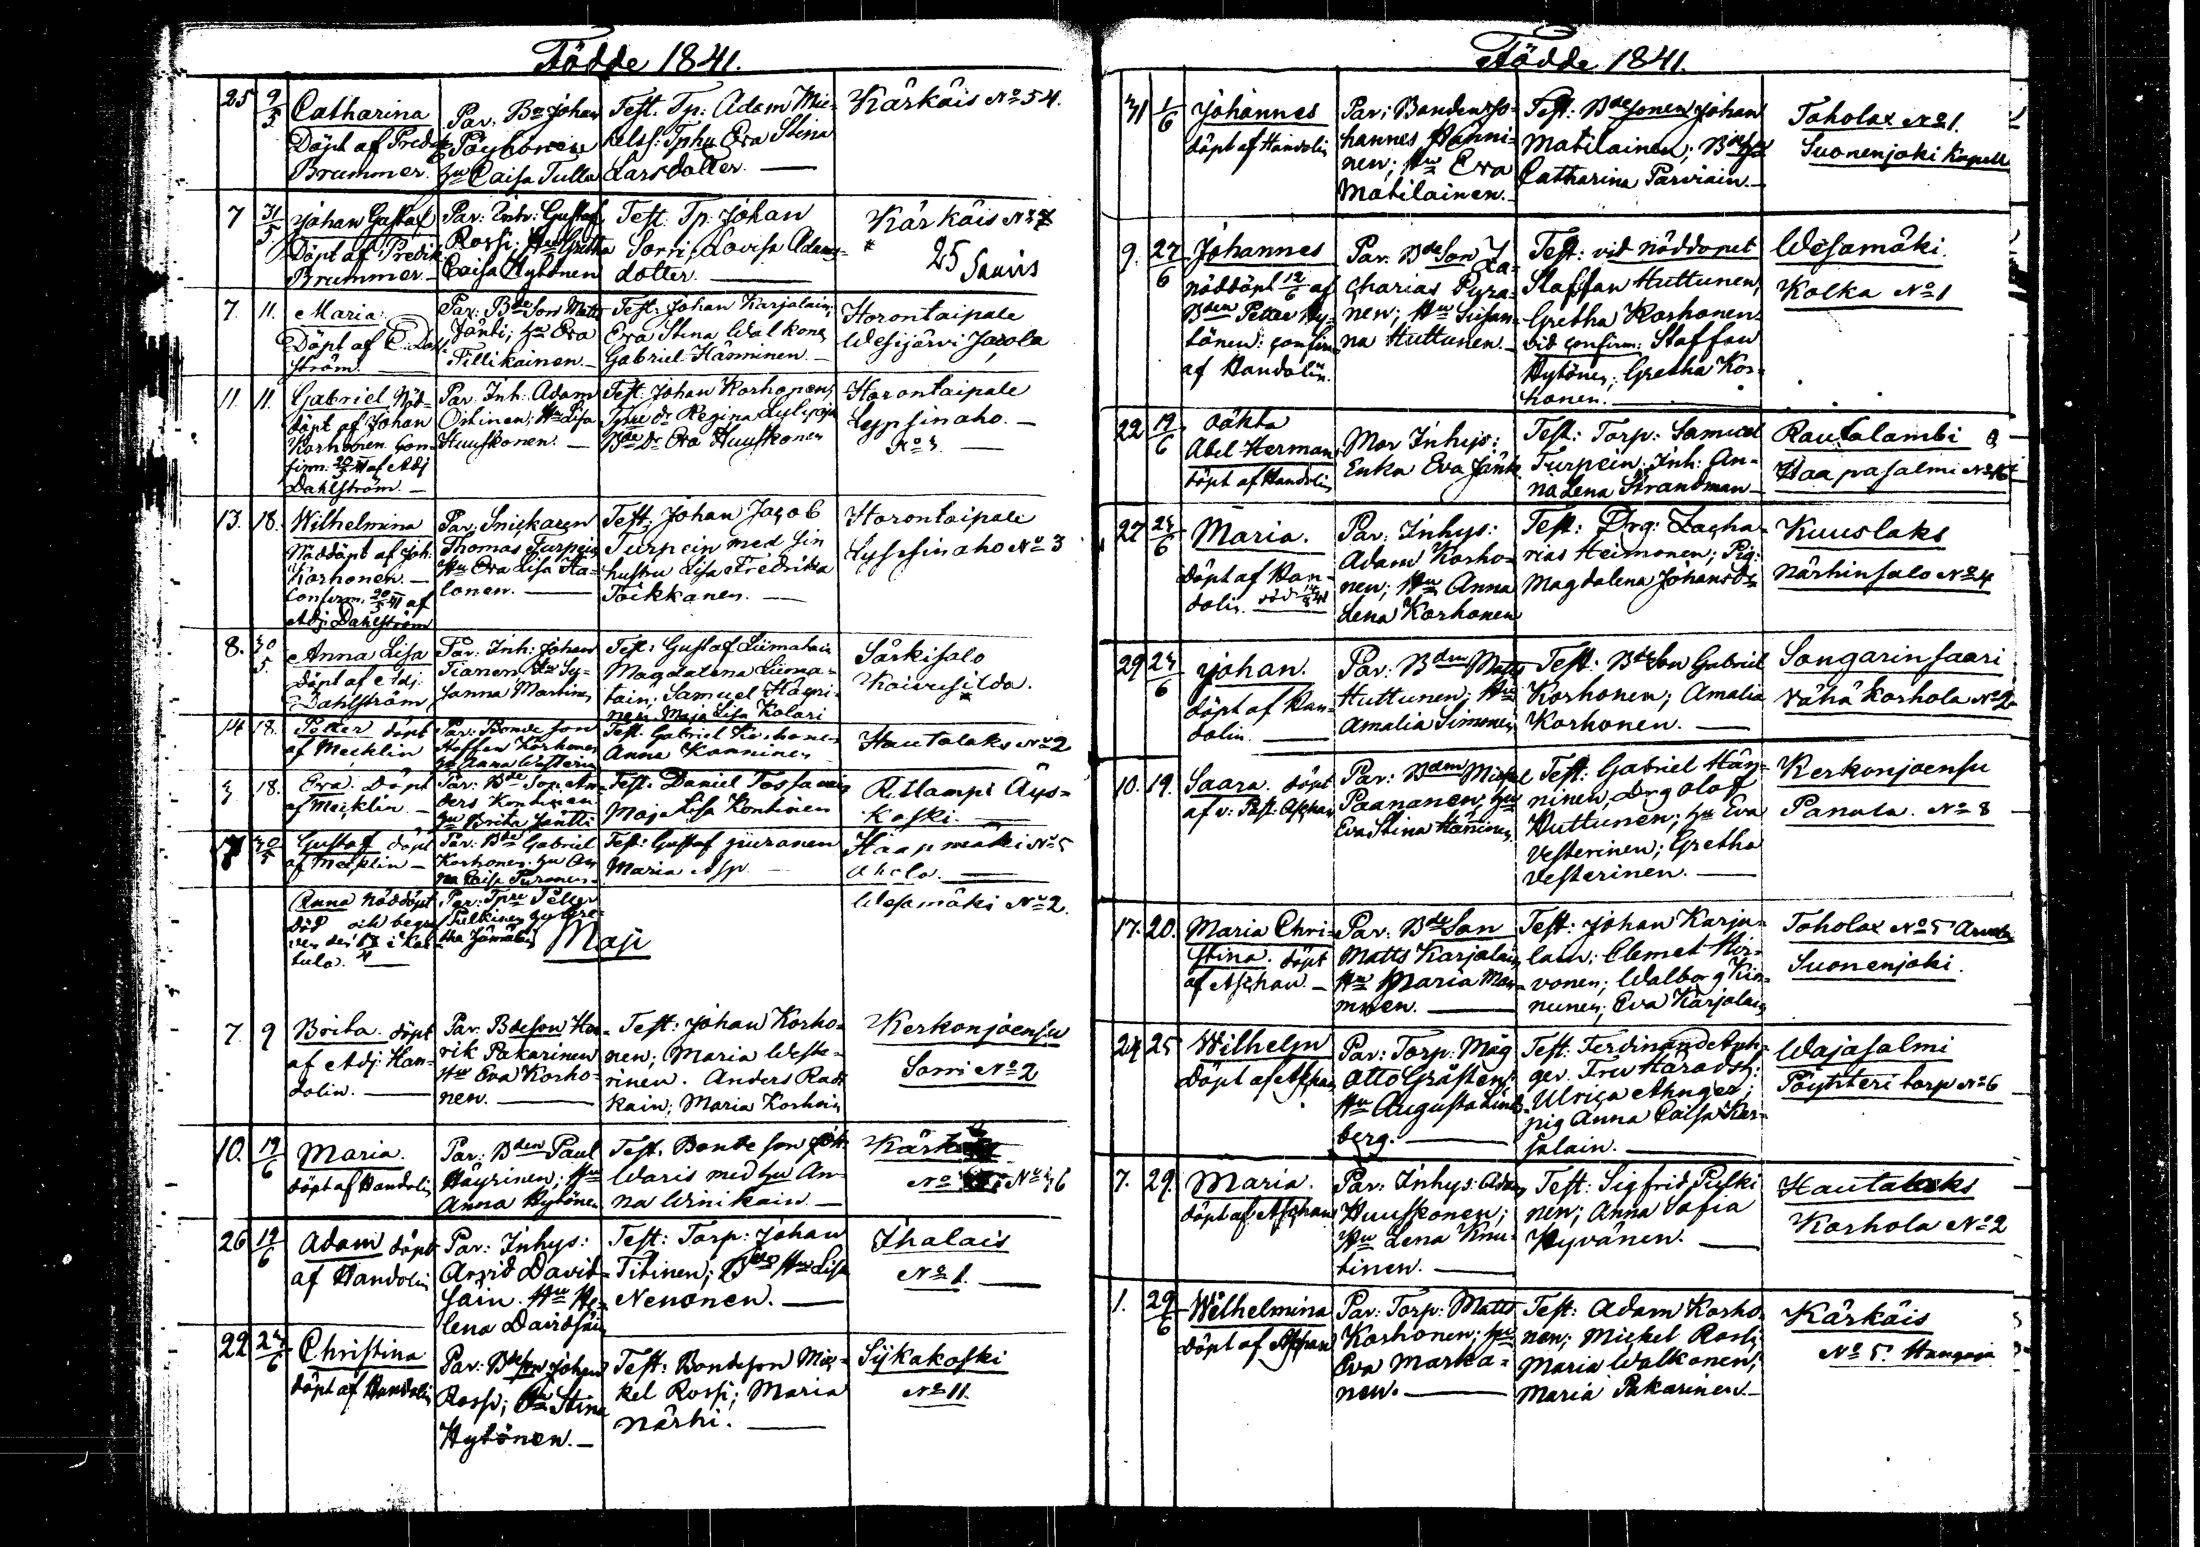 Födde 1841.
25 9/5 Catharina
Döpt af Predik
Brummer.
Par. Bn Johan
Pöyhönen
hu Caisa Tulla
Test. Tp: Adam Mic-
kelss: Tphu Eva Stina
Larsdotter.
Kärkäis No 54.
7 31/5 Johan Gustaf
Döpt af Predik
Brummer
Par: Inh: Gustaf
Rossi; Hu Gretha
Caisa Hytönen
Test. Tp. Johan
Sorri; Lovisa Adams-
dotter.
Kärkäis No 7
25 Sauvis
7. 11. Maria.
Döpt af
ström.
Par: Bde Son Matts
Jäntti; hu Eva
Tillikainen.
Test: Johan Karjalain;
Eva Stina Walkone
Gabriel Hänninen.
Horontaipale
Wesijärvi Jarola
11. 11. Gabriel Nöd-
döpt af Johan
Korhonen Con-
firm. af Adj
Dahlström.
Par. Inh. Adam
Ostinen; Hu Lisa
Huuskonen.
Test. Johan Korhonen,
Regina Lylyoja
Bde Dr Eva Huuskonen
Horontaipale
Leppsinaho.
No 3.
13. 18. Wilhelmina
Nöddöpt af Joh.
Korhonen.
Confirm. 20/5 41 af
Adj. Dahlström
Par: Snickaren
Thomas Turpein
Hu Eva Lisa Aa-
lonen.
Test: Johan Jacob
Turpein med sin
hustru Lisa Fredrika
Toikkanen.
Horontaipale
Lyssinaho No 3
8. 30/5 Anna Lisa
döpt af Adj.
Dahlström
Par: Inh: Johan
Tianen Hu Su-
sanna Martinen
Test: Gustaf Liimatain
Magdalena Liima-
tain; Samuel Häyri-
nen. Maja Lisa Kolari
Särkisalo
Koivusilda.
14 18. Petter döpt
af Mecklin
Par: Bonde Son
Staffan Korhonen
hu Anna Westerin
Test. Gabriel Korhonen
Anna Konninen
Hautolaks No 2
3 18. Eva. Döpt
af Mecklin.
Par: Bde Son An-
ders Kontinen
hu Brita Jäntti
Test: Daniel Tossavain
Maja Lisa Kontinen
Ritlampi Äys-
koski.
7 30/5 Gustaf döpt
af Mecklin
Par: Bde Gabriel
Korhonen hu An-
na Caisa Puranen
Test: Gustaf Puranen
Maria Asp
Haapmäki No 5
Ahola.
Anna Nöddöpt
död och begra
ven i Kar-
tula.
Par: Tpre Petter
Pulkinen hu Gre-
tha Jämälin
Wesamäki No 2.
Maji
7. 9 Brita. döpt
af Adj: Han-
dolin.
Par. Bdeson Hen-
rik Pakarinen
Hu Eva Korho-
nen.
Test: Johan Korho-
nen; Maria Weste-
rinen. Anders Rads
kain; Maria Korhoin
Kerkonjoensu
Sorri No 2
10. 19/6 Maria.
döpt af Handolin
Par: Bden Paul
Häyrinen; Hu
Anna Hytönen
Test. Bonde son
Waris med hu An-
na Winikain.
No 36
26 19/6 Adam döpt
af Handolin
Par: Inhys:
Arvid David-
sain. Hu He-
lena Davidsain
Test: Torp: Johan
Titinen; Bdes Hu Lisa
Nenonen.
Ihalais
No 1.
22 24/6 Christina
döpt af Handolin
Par: Bdeson Johan
Rossi; Hu Stina
Hytönen.
Test: Bondeson Mic-
kel Rossi; Maria
Närhi.
Sijkakoski
No 11.
Födde 1841.
31 1/6 Johannes
döpt af Handolin
Par: Bonden Jo-
hannes Hänni-
nen; Hu Eva
Matilainen.
Test: Bdesonen Johan
Matilainen; Bde
Catharina Parviain.
Toholax No 1.
Suonenjoki Kapell
9. 27/6 Johannes
nöddöpt 12/6 af
Bden Petter Hy-
tönen: confirm
af Handolin.
Par. Bdeson Za-
charias Pura-
nen; Hu Susan-
na Huttunen.
Test: vid Nöddopet
Staffan Huttunen,
Gretha Korhonen.
vid confirm: Staffan
Hytönen; Gretha Kor-
honen.
Wesamäki.
Kolka No 1
22 19/6 oäkta
Abel Herman
döpt af Handolin
Mor Inhys:
Enka Eva Jänt
Test: Torp: Samuel
Turpein; Inh: An-
na Lena Strandman
Rautalambi
Haapasalmi No 46
27 24/6 Maria.
döpt af Han-
dolin.
Par: Inhys:
Adam Korho-
nen; Hu Anna
Lena Korhonen
Test: Drg: Zacha-
rias Heimonen; Pig:
Magdalena Johansdr
Kuuslaks
Närhinsalo No 4
29 24/6 Johan.
döpt af Han-
dolin.
Par: Bden Matts
Huttunen; Hu
Amalia Simmen
Test: Bdeson Gabriel
Korhonen; Amalia
Korhonen.
Songarinsaari
Vähä Korhola No 2
10. 19. Saara. döpt
af v: Past. Aschan
Par: Bden Mickel
Paananen; hu
Eva Stina Hänninen
Test: Gabriel Hän-
ninen, Drg Olof
Huttunen; hu Eva
Vesterinen; Gretha
Vesterinen.
Kerkonjoensu
Panula. No 8
17. 20. Maria Chri-
stina. döpt
af Aschan.
Par: Bde Son
Matts Karjalain
Hu Maria Man-
ninen.
Test: Johan Karja-
lain; Clemet Hir-
vonen; Walborg Kin-
nunen; Eva Karjalain
Toholax No 5
Suonenjoki.
24 25 Wilhelm
döpt af Aschan
Par: Torp: Mag
Otto Gråsten;
Hu Augusta Lind-
berg.
Test: Ferdinand Ahn-
ger. Fru Häradsh:
Ulrica Ahnger;
pig Anna Caisa Kar-
jalain.
Wajasalmi
Pöyhteri torp No 6
7. 29. Maria.
döpt af Aschan
Par: Inhys: Adam
Huuskonen;
Hu Lena Knu-
tinen.
Test: Sigfrid Pulki
nen; Anna Sofia
Hyvänen.
Hautalaks
Korhola No 2
1. 29/6 Wilhelmina
döpt af Aschan
Par: Torp: Matts
Korhonen; hu
Eva Marka-
nen.
Test: Adam Korho-
nen; Mickel Rossi;
Maria Walkonen;
Maria Pakarinen
Kärkäis
No 5. Hangaja